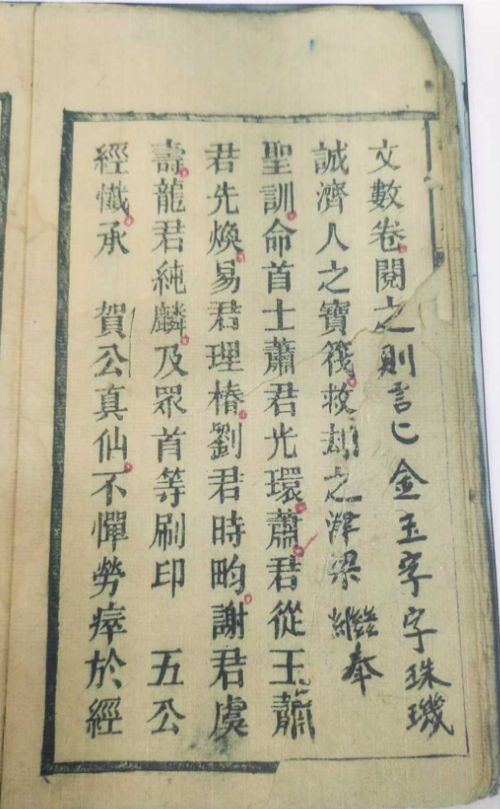 文數卷閱之則言〻金玉字字珠璣
誠濟人之寶筏救劫之津梁　繼奉
聖訓命首士蕭君光環蕭君從王蕭
君先煥易君理椿劉君時畇謝君虞
壽龍君純麟及眾首等刷印　五公
經懺承　賀公真仙不憚勞瘁於經